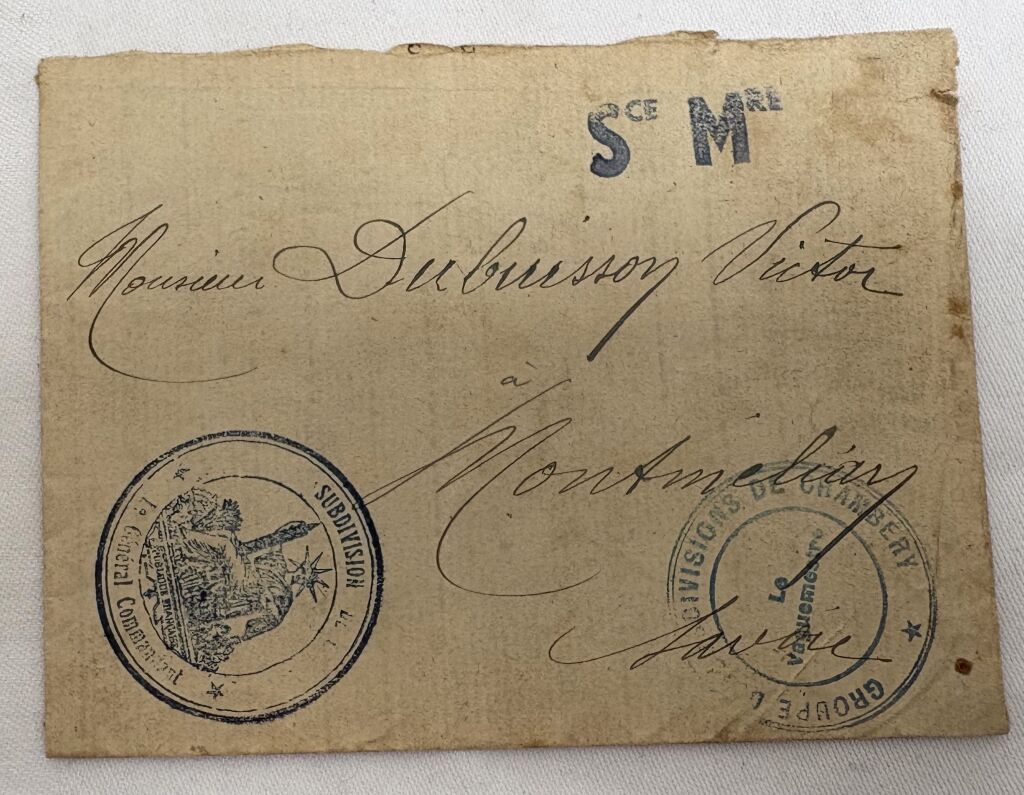 Sce MRE
Monsieur Dubuisson Victor
à
Montmélian
Savoie
SUBDIVISION DE
Le Général Commandant
RÉPUBLIQUE FRANÇAISE
DIVISIONS DE CHAMBÉRY
GROUPE
Le
Vaguemestre